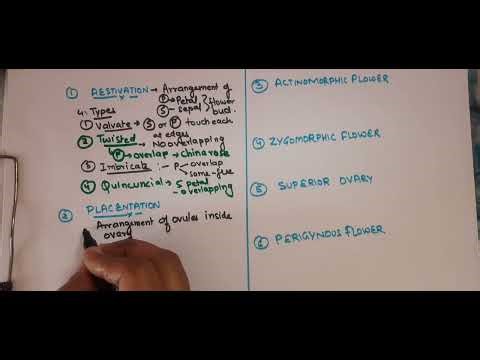 ① AESTIVATION → Arrangement of
Ⓟ → Petal
Ⓢ - sepal } flower bud.
4. Types
① Valvate → Ⓢ or Ⓟ touch each
at edges
② Twisted → No overlapping
Ⓟ → overlap → china rose
③ Imbricate :- P overlap
some - free
④ Quincuncial → 5 petal
- overlapping
② PLACENTATION
Arrangement of ovules inside
ovary
③ ACTINOMORPHIC FLOWER
④ ZYGOMORPHIC FLOWER
⑤ SUPERIOR OVARY
⑥ PERIGYNOUS FLOWER